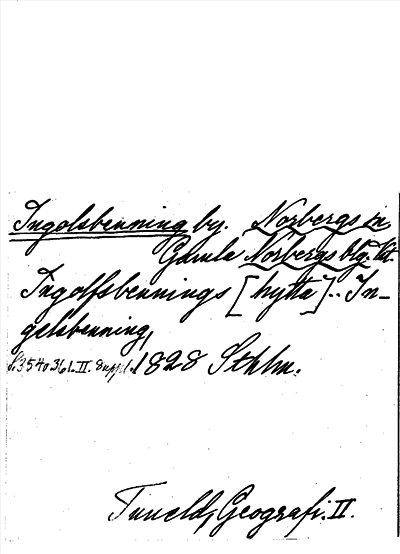 Ingolsbenning by. Norbergs sn
Gamla Norbergs blg. Vst.
Ingolfsbennings [hytta].. In-
gelsbenning,
S.354 o 361. II. Suppl. 1828 Sthlm.
Tuneld, Geografi. II.